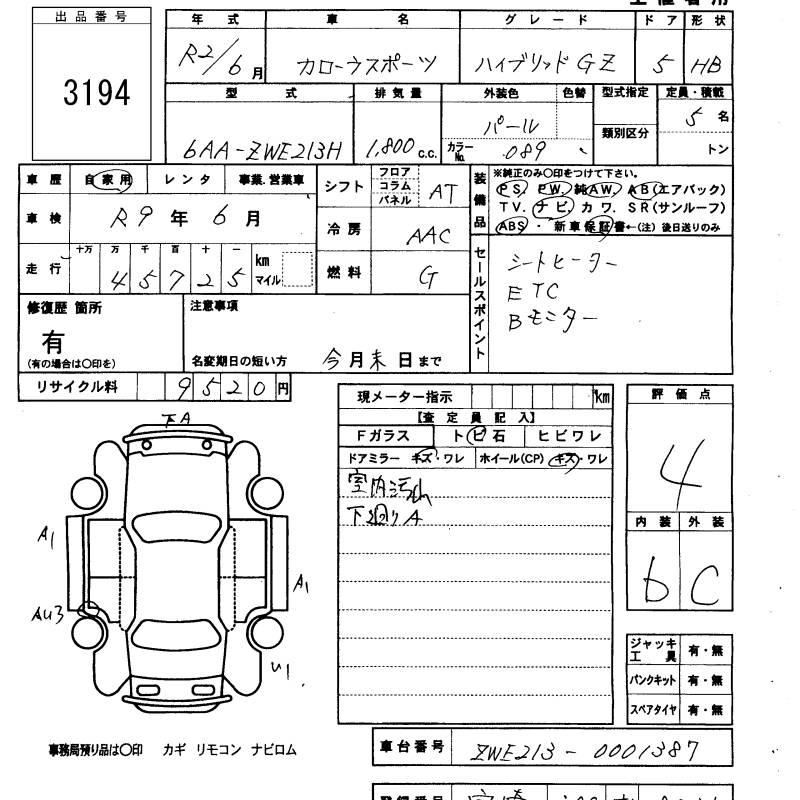 出品番号
3194
年式 車名 グレード ドア 形状
R2/6月 カローラスポーツ ハイブリッドGZ 5 HB
型式 排気量 外装色 色替 型式指定 定員・積載
6AA-ZWE213H 1,800 c.c. パール カラーNo. 089 類別区分 5名 トン
車歴 自家用 レンタ 事業.営業車
車検 R9年6月
走行 十万 万 千 百 十 一 km マイル
45725
シフト フロア コラム パネル AT
冷房 AAC
燃料 G
装備品
※純正のみ〇印をつけて下さい。
PS. PW. 純AW. AB(エアバック)
TV. ナビ. カワ. SR(サンルーフ)
ABS ・ 新車保証書←(注) 後日送りのみ
セールスポイント
シートヒーター
ETC
Bモニター
修復歴 箇所
有
(有の場合は〇印を)
注意事項
名変期日の短い方 今月末日まで
リサイクル料 9520円
現メーター指示 km
【査定員記入】
Fガラス トビ石 ヒビワレ
ドアミラー キズ・ワレ ホイール(CP) キズ・ワレ
室内汚れ
下廻りA
評価点
4
内装 外装
b C
下A
A1
A1
AU3
U1
ジャッキ工具 有・無
パンクキット 有・無
スペアタイヤ 有・無
事務局預り品は〇印 カギ リモコン ナビロム
車台番号 ZWE213-0001387